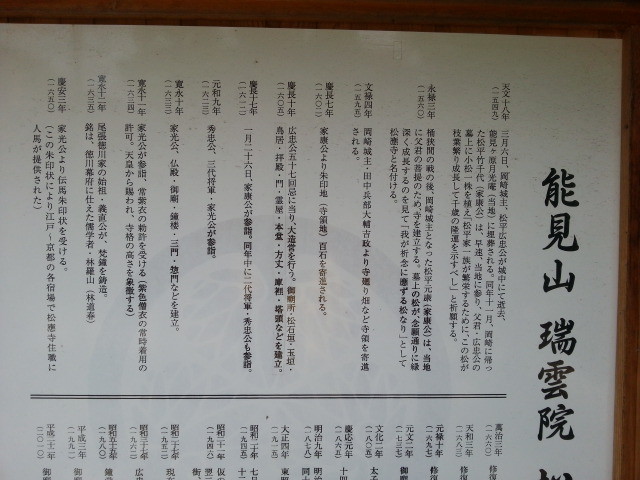 能見山 瑞雲院 松
天文十八年
(一五四九)
三月六日、岡崎城主、松平広忠公が城中にて逝去、
能見ヶ原月光庵(当地)に埋葬される。同年十一月、岡崎に帰っ
た松平竹千代(家康公)は、早速、当地に参り、父君・広忠公の
墓上に小松一株を植え「松平家一族が繁栄するために、この松が
枝葉繁り成長して千歳の隆運を示すべし」と祈願する。
永禄三年
(一五六〇)
桶狭間の戦の後、岡崎城主となった松平元康(家康公)は、当地
に父君の菩提のため、寺を建立する。墓上の松が、念願通りに緑
深く成長するのを見て「我が祈念に應ずる松なり」として
松應寺と名付ける。
文禄四年
(一五九五)
岡崎城主・田中兵部大輔吉政より寺廻り畑など寺領を寄進
される。
慶長七年
(一六〇二)
家康公より朱印地(寺領地)百石を寄進される。
慶長十年
(一六〇五)
広忠公五十七回忌に当り、大造営を行う。御廟所・松石垣・玉垣・
鳥居・拝殿・門・霊屋・本堂・方丈・庫裡・塔頭などを建立。
慶長十七年
(一六一二)
一月二十六日、家康公が参詣。同年中に二代将軍・秀忠公も参詣。
元和九年
(一六二三)
秀忠公、三代将軍・家光公が参詣。
寛永十年
(一六三三)
家光公、仏殿・御廟・鐘楼・三門・惣門などを建立。
寛永十一年
(一六三四)
家光公が参詣、常紫衣の勅許を受ける(紫色僧衣の常時着用の
許可。天皇から賜われ、寺格の高さを象徴する)
寛永十二年
(一六三五)
尾張徳川家の始祖・義直公が、梵鐘を鋳造。
銘は、徳川幕府に仕えた儒学者・林羅山(林道春)
慶安三年
(一六五〇)
家光公より伝馬朱印状を受ける。
(この朱印状により江戸〜京都の各宿場で松應寺住職に
人馬が提供された)
萬治三年
(一六六〇)
修復
天和三年
(一六八三)
修復
元禄十年
(一六九七)
修復
元文二年
(一七三七)
御廟
文化二年
(一八〇五)
太子
慶応元年
(一八六五)
十四
明治九年
(一八七六)
明治
同十
大正四年
(一九一五)
東照
昭和二十年
(一九四五)
七月
十二
昭和二十一年
(一九四六)
仮の
翌三
街、
昭和二十七年
(一九五二)
現在
昭和三十七年
(一九六二)
広忠
昭和五十五年
(一九八〇)
鐘堂
平成三年
(一九九一)
御廟
平成二十二年
(二〇一〇)
御廟